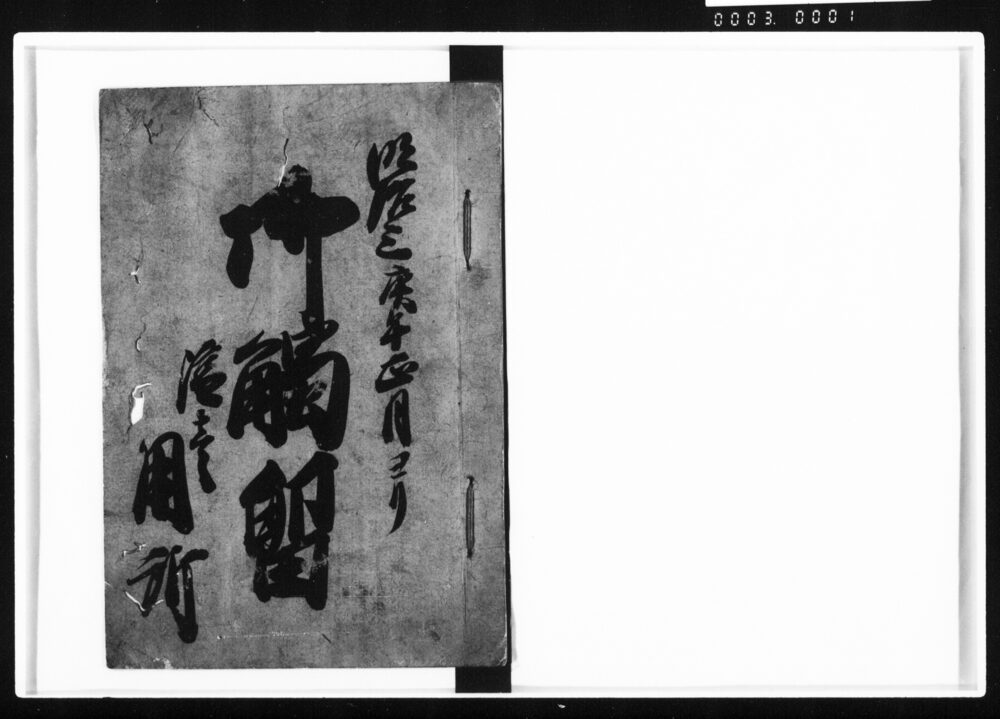 0003. 0001
明治三庚午正月ヨリ
御觸留
用所